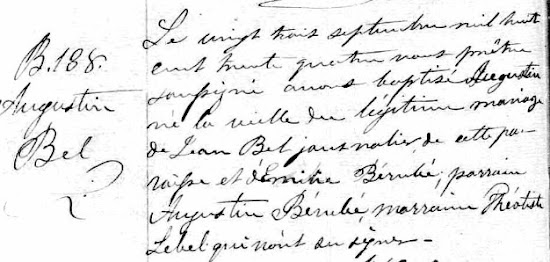 B.188.
Augustin
Bel
Le vingt trois septembre mil huit
cent trente quatre nous prêtre
soussigné avons baptisé Augustin
né la veille du légitime mariage
de Jean Bel journalier de cette pa-
roisse et d'Emilie Bérubé; parrain
Augustin Bérubé, marraine Théotiste
Lebel qui n'ont su signer -